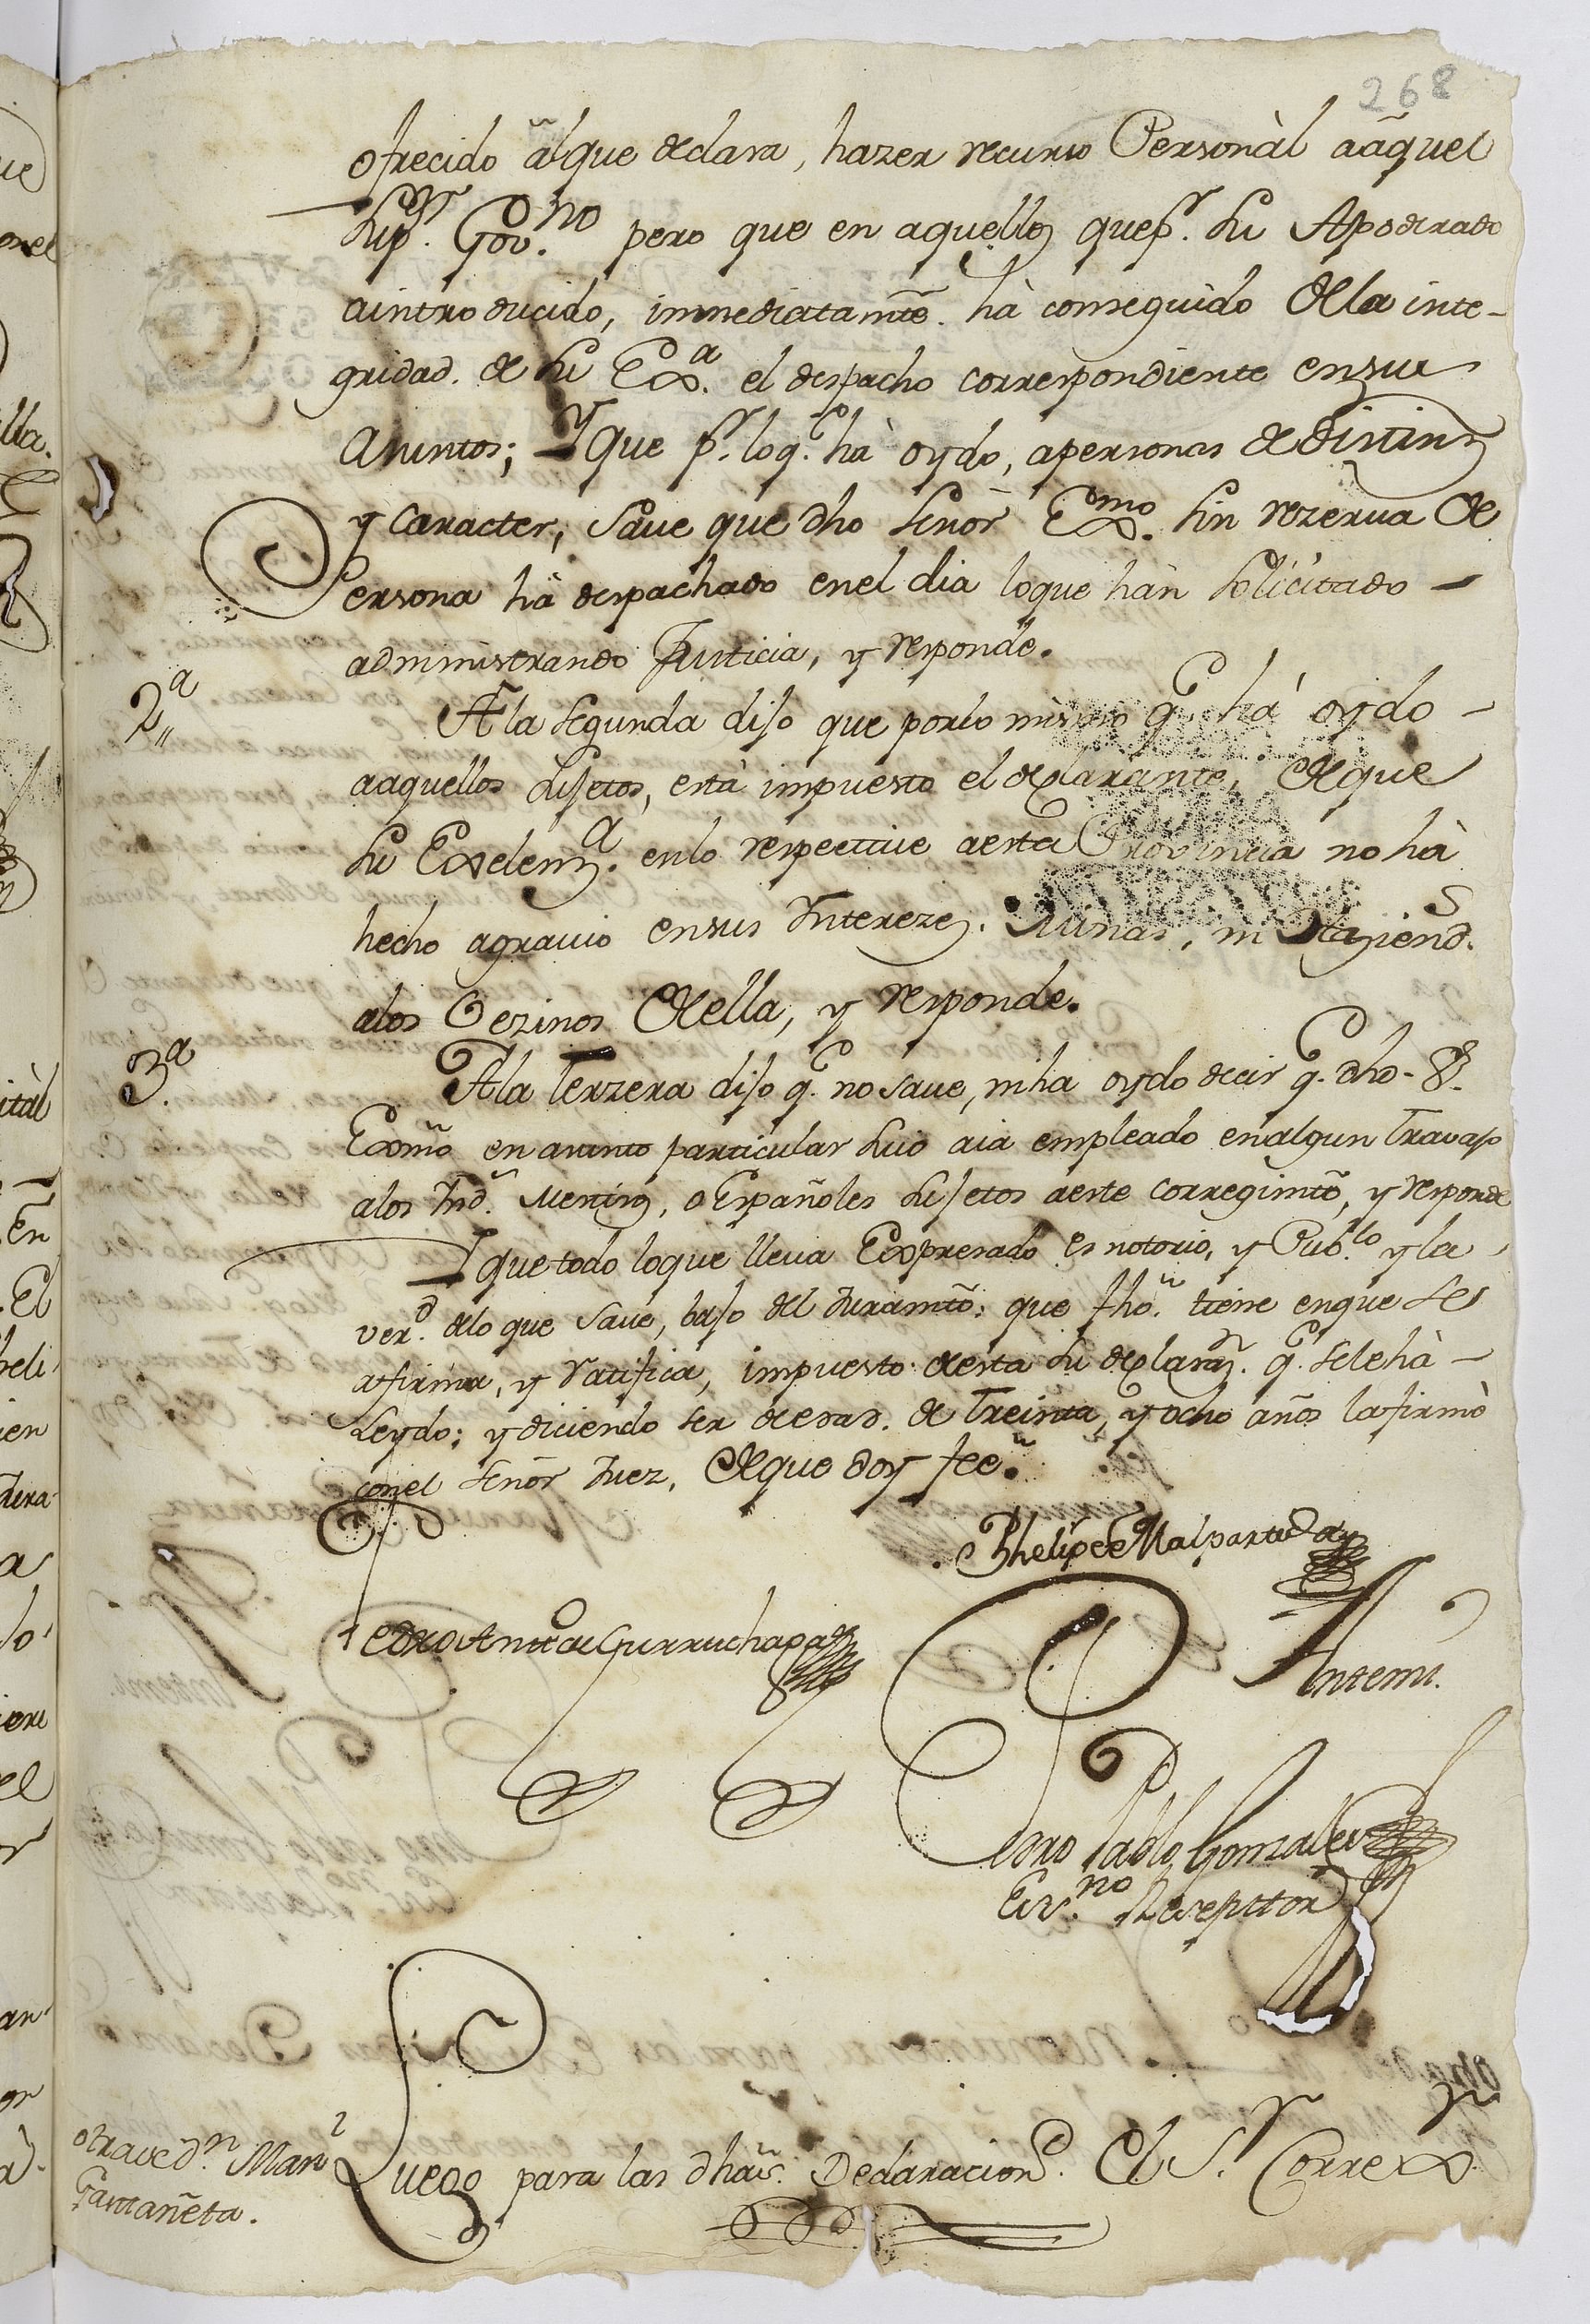 268
ofrecido âl que declara, hazer recurso Personàl aâquel
Sup.r Gov.no pero que en aquellos que p.r su Apoderado
a introducido, immediatamte. hà conseguido de la inte-
gridad. de su Exa. el despacho correspondiente en sus
asuntos; Y que p.r lo q.e hà oydo, a personas de distinn
y caracter, save que dho señor Exmo. sin rezerva de
Persona hà despachado en el dia lo que hàn solicitado -
administrando Justicia, y responde.
2a A la segunda dijo que por lo mismo q.e há oydo -
a aquellos sujetos, està impuesto el declarante, de que
su Exelenza. en lo respective a esta Provincia no hà
hecho agravio en sus Interezes. Minas, ni Haziends.
a los Vezinos de ella, y responde.
3a. A la Terzera dijo q.e no save, ni ha oydo decir q.e dho. S.r
Exmo en asunto particular suio aia empleado en algun Travajo
a los Ind.s Mestizos, o Españoles sujetos a este corregimto, y responde
Y que todo lo que lleva Expresado es notorio, y Pub.lo y la
ver.d de lo que save, bajo del Juramto. que fho. tiene en que se
afirma, y ratifica, impuesto de esta su declaraz.n q.e se le hà -
Leydo; y diciendo ser de edad. de Treinta, y ocho años la firmò
con el señor Juez, de que doy fee.
Phelipe Malpartida
Pedro Antto de Gurruchaga
Antemi.
Pedro Pablo Gonzales
Esv.no Reseptor
otra de D.n Man.l
Gastañeta.
Luego para las dhas. Declaracions. El S.r Correxr.